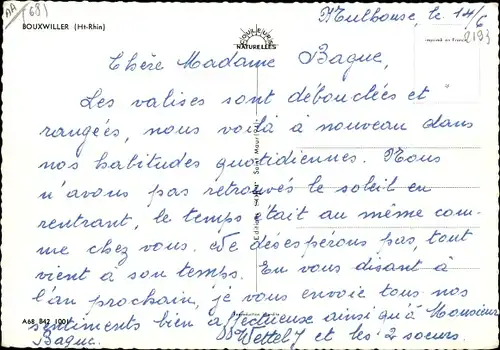 AA (68)
BOUXWILLER (Ht-Rhin)
COULEURS
NATURELLES
Mulhouse, le 14/6
2193
Imprimé en France
Chère Madame Bague,
Les valises sont débouclées et
rangées, nous voilà à nouveau dans
nos habitudes quotidiennes. Nous
n'avons pas retrouvés le soleil en
rentrant, le temps était au même com-
me chez vous. Ne désespérons pas, tout
vient à son temps. En vous disant à
l'an prochain, je vous envoie tous nos
sentiments bien affectueux ainsi qu'à Monsieur
Bague.
Wettel J et les 2 soeurs.
A68 842 1001